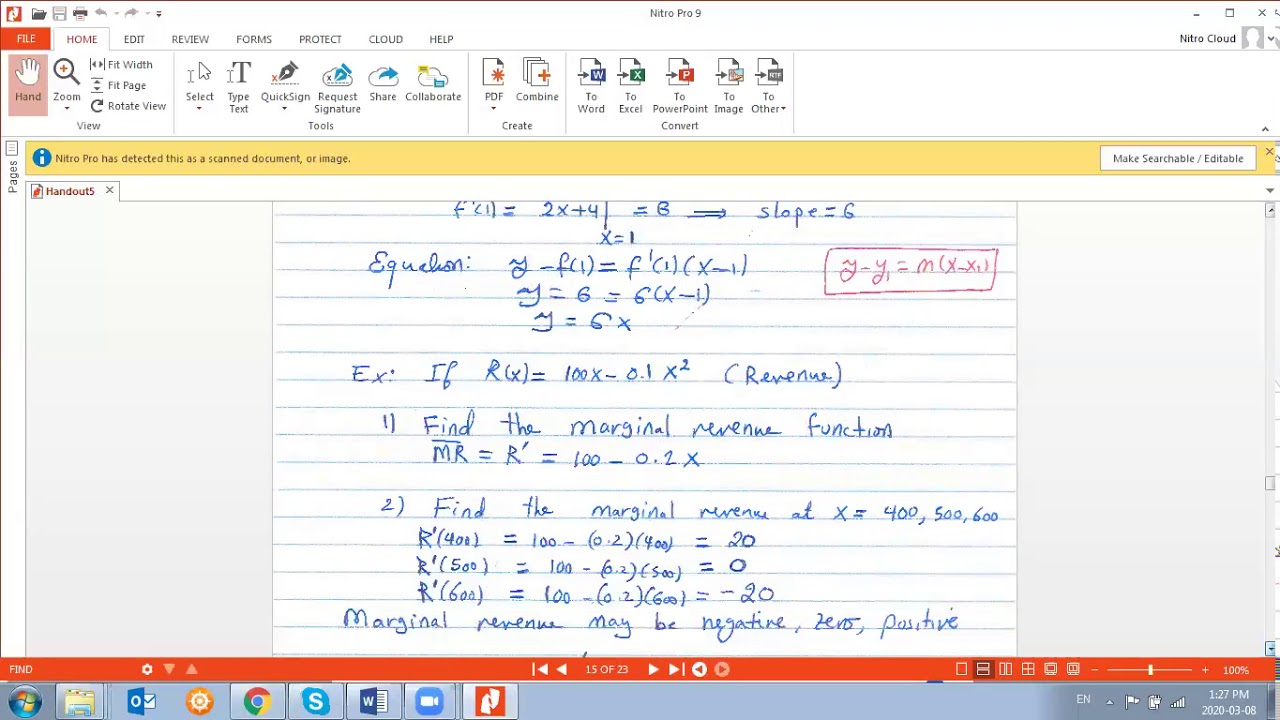 Nitro Pro 9
FILE HOME EDIT REVIEW FORMS PROTECT CLOUD HELP Nitro Cloud
Hand Zoom Fit Width Fit Page Rotate View Select Type Text QuickSign Request Signature Share Collaborate PDF Combine To Word To Excel To PowerPoint To Image To Other
View Tools Create Convert
Nitro Pro has detected this as a scanned document, or image. Make Searchable / Editable
Pages
Handout5
f'(1) = 2x+4| = 6 ⟹ slope = 6
x=1
Equation: y - f(1) = f'(1)(x-1) y-y₁ = m(x-x₁)
y = 6 = 6(x-1)
y = 6x
Ex: If R(x) = 100x - 0.1x² (Revenue)
1) Find the marginal revenue function
MR = R' = 100 - 0.2x
2) Find the marginal revenue at x = 400, 500, 600
R'(400) = 100 - (0.2)(400) = 20
R'(500) = 100 - (0.2)(500) = 0
R'(600) = 100 - (0.2)(600) = -20
Marginal revenue may be negative, zero, positive
FIND 15 OF 23 100%
EN 1:27 PM
2020-03-08